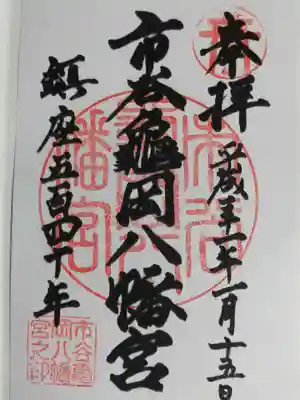 奉拝
平成三十一年一月十五日
市谷龜岡八幡宮
鎮座五百四十年
市谷
龜岡八
幡宮
市谷亀
岡八幡
宮之印